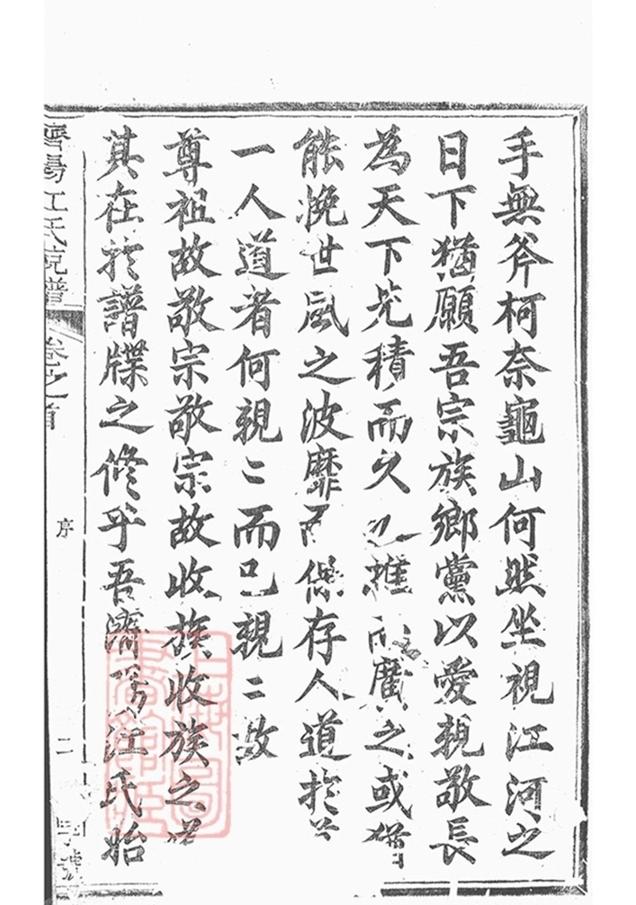 手無斧柯奈龜山何然坐視江河之
日下猶願吾宗族鄉黨以愛親敬長
為天下先積而久之推而廣之或猶
能挽世風之波靡而保存人道於
一人道者何親〻而已親〻故
尊祖故敬宗敬宗故收族收族之
其在於譜牒之修乎吾濟陽江氏始
濟陽江氏宗譜 卷之首
序
二